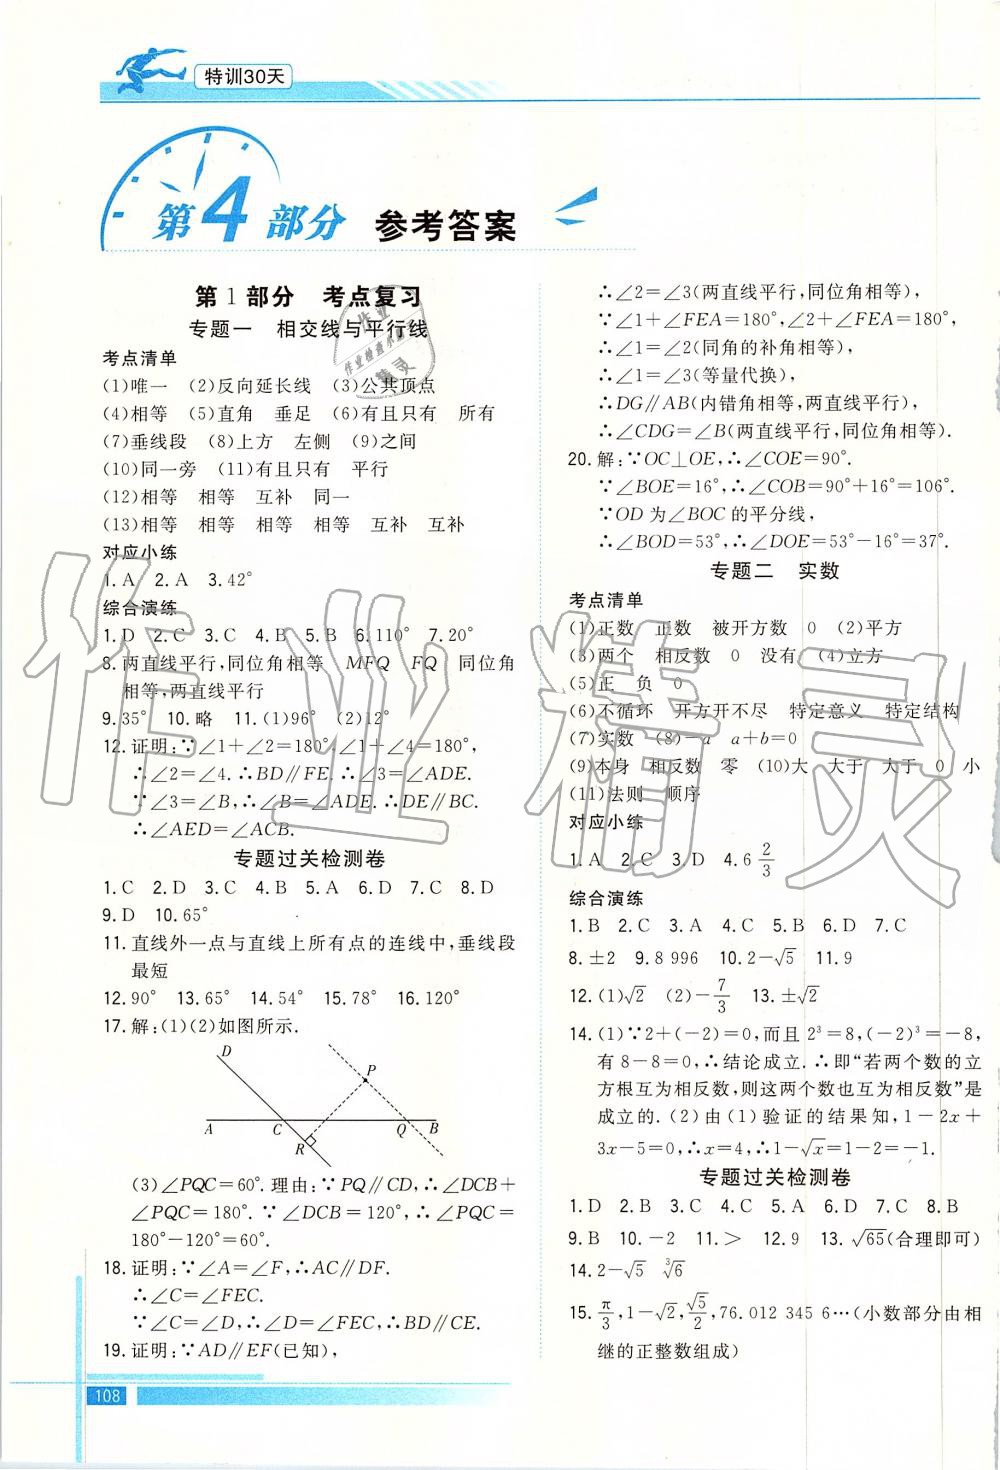 特训30天
第4部分 参考答案
第1部分 考点复习
专题一 相交线与平行线
考点清单
(1)唯一 (2)反向延长线 (3)公共顶点
(4)相等 (5)直角 垂足 (6)有且只有 所有
(7)垂线段 (8)上方 左侧 (9)之间
(10)同一旁 (11)有且只有 平行
(12)相等 相等 互补 同一
(13)相等 相等 相等 相等 互补 互补
对应小练
1.A 2.A 3.42°
综合演练
1.D 2.C 3.C 4.B 5.B 6.110° 7.20°
8.两直线平行,同位角相等 MFQ FQ 同位角
相等,两直线平行
9.35° 10.略 11.(1)96° (2)12°
12.证明:∵∠1+∠2=180°,∠1+∠4=180°,
∴∠2=∠4.∴BD∥FE.∴∠3=∠ADE.
∵∠3=∠B,∴∠B=∠ADE.∴DE∥BC.
∴∠AED=∠ACB.
专题过关检测卷
1.C 2.D 3.C 4.B 5.A 6.D 7.C 8.D
9.D 10.65°
11.直线外一点与直线上所有点的连线中,垂线段
最短
12.90° 13.65° 14.54° 15.78° 16.120°
17.解:(1)(2)如图所示.
D
P
A C Q B
R
(3)∠PQC=60°.理由:∵PQ∥CD,∴∠DCB+
∠PQC=180°.∵∠DCB=120°,∴∠PQC=
180°-120°=60°.
18.证明:∵∠A=∠F,∴AC∥DF.
∴∠C=∠FEC.
∵∠C=∠D,∴∠D=∠FEC,∴BD∥CE.
19.证明:∵AD∥EF(已知),
108
∴∠2=∠3(两直线平行,同位角相等),
∵∠1+∠FEA=180°,∠2+∠FEA=180°,
∴∠1=∠2(同角的补角相等),
∴∠1=∠3(等量代换),
∴DG∥AB(内错角相等,两直线平行),
∴∠CDG=∠B(两直线平行,同位角相等).
20.解:∵OC⊥OE,∴∠COE=90°.
∵∠BOE=16°,∴∠COB=90°+16°=106°.
∵OD为∠BOC的平分线,
∴∠BOD=53°,∴∠DOE=53°-16°=37°.
专题二 实数
考点清单
(1)正数 正数 被开方数 0 (2)平方
(3)两个 相反数 0 没有 (4)立方
(5)正 负 0
(6)不循环 开方开不尽 特定意义 特定结构
(7)实数 (8)-a a+b=0
(9)本身 相反数 零 (10)大 大于 大于 0 小
(11)法则 顺序
对应小练
1.A 2.C 3.D 4.6 2/3
综合演练
1.B 2.C 3.A 4.C 5.B 6.D 7.C
8.±2 9.8 996 10.2-√5 11.9
12.(1)√2 (2)-7/3 13.±√2
14.(1)∵2+(-2)=0,而且2³=8,(-2)³=-8,
有8-8=0,∴结论成立.∴即“若两个数的立
方根互为相反数,则这两个数也互为相反数”是
成立的.(2)由(1)验证的结果知,1-2x+
3x-5=0,∴x=4,∴1-√x=1-2=-1.
专题过关检测卷
1.D 2.B 3.C 4.C 5.A 6.D 7.C 8.B
9.B 10.-2 11.> 12.9 13.√65(合理即可)
14.2-√5 ³√6
15.π/3,1-√2,√5/2,76.012 345 6…(小数部分由相
继的正整数组成)
作业精灵